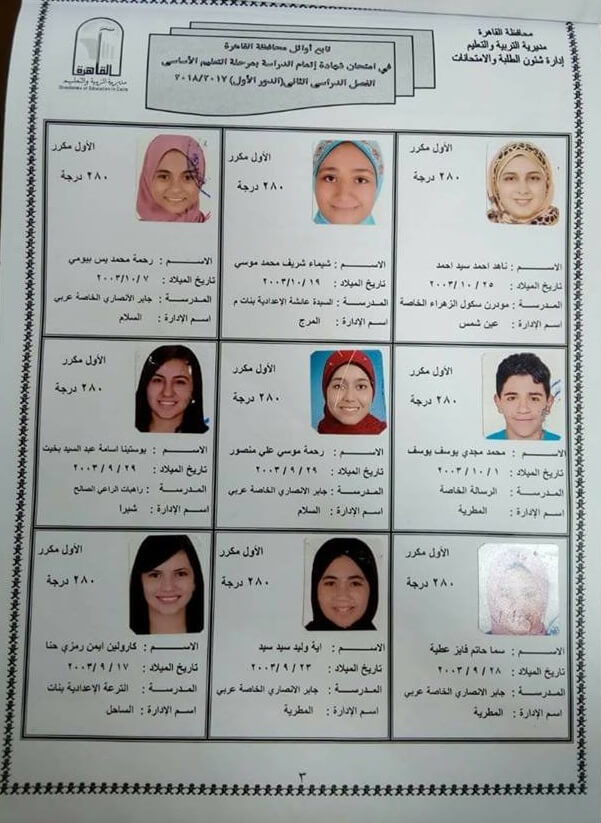 محافظة القاهرة
مديرية التربية والتعليم
إدارة شئون الطلبة والامتحانات
تابع أوائل محافظة القاهرة
في امتحان شهادة إتمام الدراسة بمرحلة التعليم الأساسى
الفصل الدراسى الثانى (الدور الأول) ٢٠١٨/٢٠١٧
القاهرة
مديرية التربية والتعليم
Directorate of Education in Cairo
الأول مكرر
٢٨٠ درجة
الاســـــم : ناهد احمد سيد احمد
تاريخ الميلاد : ٢٥ / ١٠ / ٢٠٠٣
المـدرســـة : مودرن سكول الزهراء الخاصة
اسـم الإدارة : عين شمس
الأول مكرر
٢٨٠ درجة
الاســـــم : شيماء شريف محمد موسي
تاريخ الميلاد : ١٩ / ١٠ / ٢٠٠٣
المـدرســـة : السيدة عائشة الإعدادية بنات م
اسـم الإدارة : المرج
الأول مكرر
٢٨٠ درجة
الاســـــم : رحمة محمد يس بيومي
تاريخ الميلاد : ٧ / ١٠ / ٢٠٠٣
المـدرســـة : جابر الانصاري الخاصة عربي
اسـم الإدارة : السلام
الأول مكرر
٢٨٠ درجة
الاســـــم : محمد مجدي يوسف يوسف
تاريخ الميلاد : ١ / ١٠ / ٢٠٠٣
المـدرســـة : الرسالة الخاصة
اسـم الإدارة : المطرية
الأول مكرر
٢٨٠ درجة
الاســـــم : رحمة موسي علي منصور
تاريخ الميلاد : ٢٩ / ٩ / ٢٠٠٣
المـدرســـة : جابر الانصاري الخاصة عربي
اسـم الإدارة : السلام
الأول مكرر
٢٨٠ درجة
الاســـــم : يوستينا اسامة عبد السيد بخيت
تاريخ الميلاد : ٢٩ / ٩ / ٢٠٠٣
المـدرســـة : راهبات الراعي الصالح
اسـم الإدارة : شبرا
الأول مكرر
٢٨٠ درجة
الاســـــم : سما حاتم فايز عطية
تاريخ الميلاد : ٢٨ / ٩ / ٢٠٠٣
المـدرســـة : جابر الانصاري الخاصة عربي
اسـم الإدارة : المطرية
الأول مكرر
٢٨٠ درجة
الاســـــم : اية وليد سيد سيد
تاريخ الميلاد : ٢٣ / ٩ / ٢٠٠٣
المـدرســـة : جابر الانصاري الخاصة عربي
اسـم الإدارة : المطرية
الأول مكرر
٢٨٠ درجة
الاســـــم : كارولين ايمن رمزي حنا
تاريخ الميلاد : ١٧ / ٩ / ٢٠٠٣
المـدرســـة : الترعة الإعدادية بنات
اسـم الإدارة : الساحل
٣